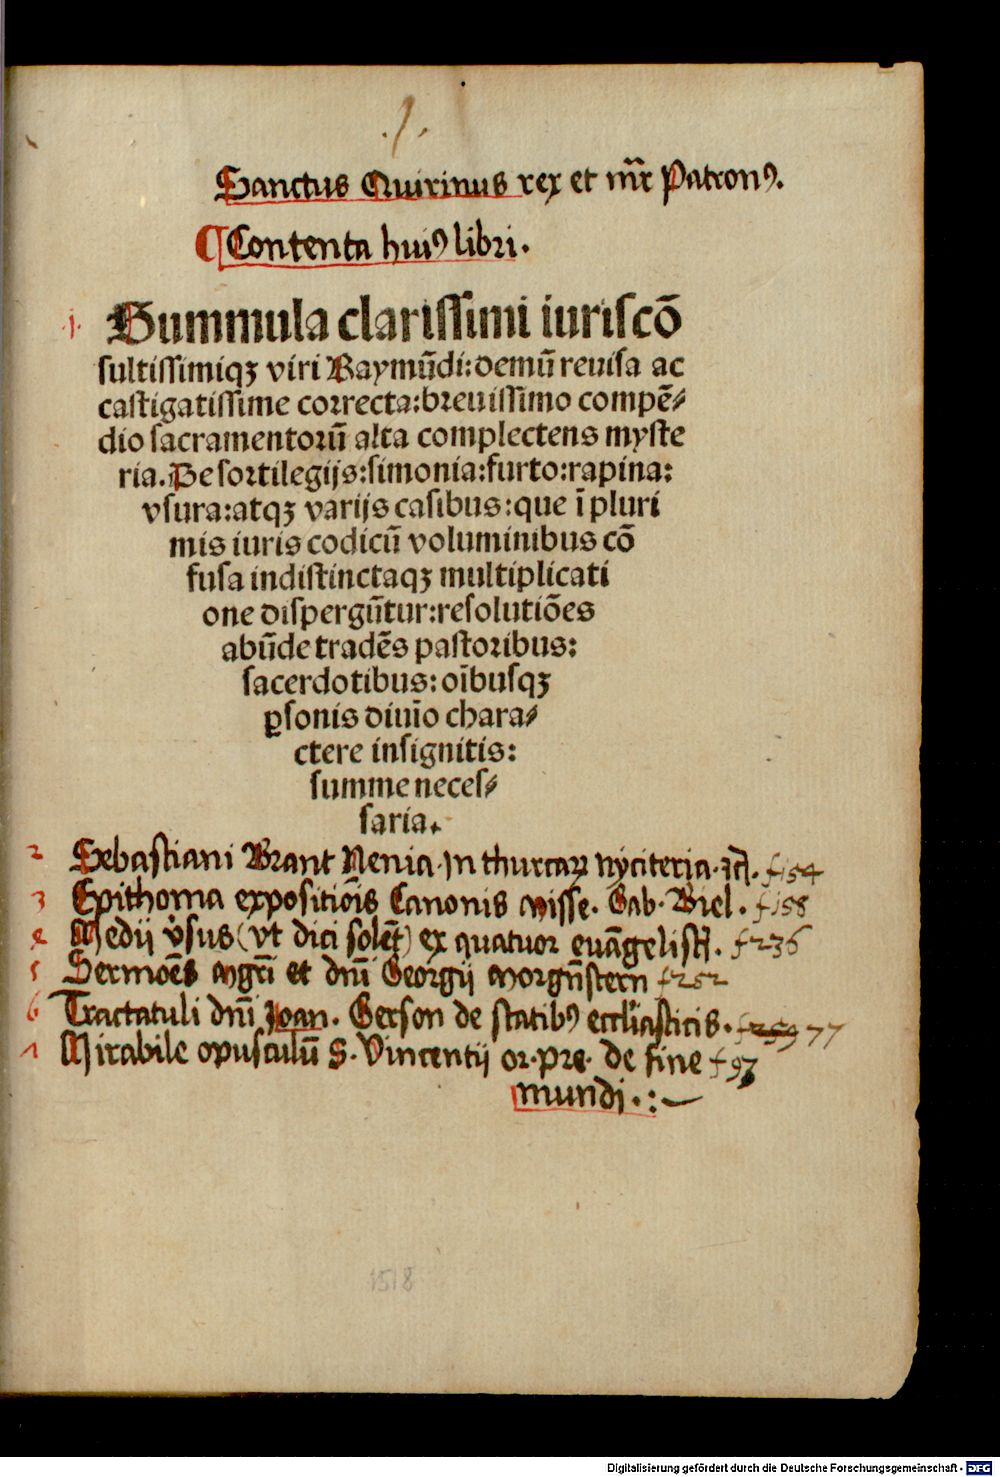 .1.
Sanctus Quirinus rex et mr̃ Patronꝰ.
¶ Contenta huiꝰ libri.
.1. Summula clarissimi iuriscõ
sultissimiqꝫ viri Raymũdi: demũ reuisa ac
castigatissime correcta: breuissimo compẽ⸗
dio sacramentorũ alta complectens myste
ria. De sortilegijs: simonia: furto: rapina:
vsura: atqꝫ varijs casibus: que ĩ pluri
mis iuris codicũ voluminibus cõ
fusa indistinctaqꝫ multiplicati
one dispergũtur: resolutiões
abũde tradẽs pastoribus:
sacerdotibus: oĩbusqꝫ
ꝑsonis diuĩo chara⸗
ctere insignitis:
summe neces⸗
saria.
2 Sebastiani Brant Nenia. In thurcaꝝ nyciteria. f 154
3 Epithoma expositiõis Canonis Misse. Gab. Biel. f 158
4 Medij vsus (vt dici solẽt) ex quatuor euãgelist. f 236
5 Sermoẽs mgr̃i et dñi Georgij Morgñstern f 252
6 Tractatuli dñi Joan. Gerson de statibꝰ eccl'iasticis. f 259 77
7 Mirabile opusculũ S. Vincentij or. pre. de fine f 97
mundi . :
1518
Digitalisierung gefördert durch die Deutsche Forschungsgemeinschaft - DFG